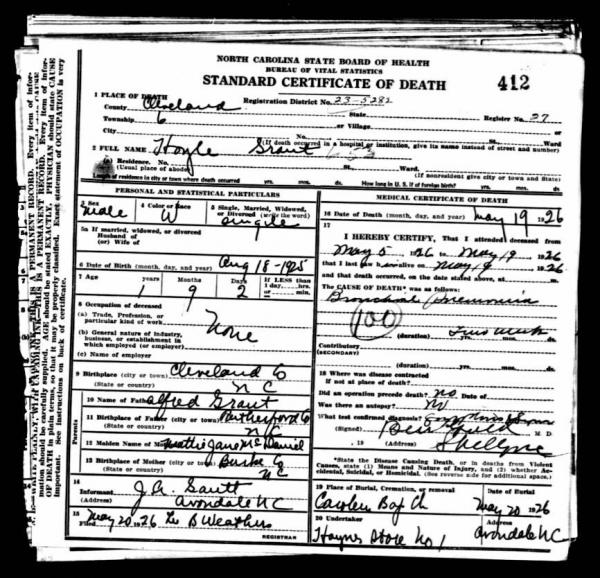 NORTH CAROLINA STATE BOARD OF HEALTH
BUREAU OF VITAL STATISTICS
STANDARD CERTIFICATE OF DEATH
412
1 PLACE OF DEATH
County Cleveland Registration District No. 23-5282
State Register No. 37
Township 6 or Village or
City No. St. Ward
(If death occurred in a hospital or institution, give its name instead of street and number)
2 FULL NAME Hoyle Grant
(a) Residence. No. St. Ward
(Usual place of abode) (If nonresident give city or town and State)
Length of residence in city or town where death occurred yrs. mos. ds. How long in U. S. if of foreign birth? yrs. mos. ds.
PERSONAL AND STATISTICAL PARTICULARS
3 Sex male
4 Color or Race W
5 Single, Married, Widowed, or Divorced (write the word) single
5a If married, widowed, or divorced
Husband of
(or) Wife of
6 Date of Birth (month, day, and year) Aug 18-1925
7 Age Years Months Days If LESS than
1 9 2 1 day, hrs.
or min.
8 Occupation of deceased
(a) Trade, Profession, or
particular kind of work None
(b) General nature of industry,
business, or establishment in
which employed (or employer)
(c) Name of employer
9 Birthplace (city or town) Cleveland Co
(State or country) N C
Parents
10 Name of Father Alfred Grant
11 Birthplace of Father (city or town) Rutherford Co
(State or country) N C
12 Maiden Name of Mother Mattie Jane McDaniel
13 Birthplace of Mother (city or town) Burke Co
(State or country) N C
14
Informant J. A.
(Address) Avondale NC
15
Filed May 20 1926
REGISTRAR
MEDICAL CERTIFICATE OF DEATH
16 Date of Death (month, day, and year) May 19 1926
17
I HEREBY CERTIFY, That I attended deceased from
May 5 1926 to May 19 1926
that I last saw alive on May 19 1926
and that death occurred, on the date stated above, at m.
The CAUSE OF DEATH* was as follows:
Bronchial Pneumonia
100
(duration) yrs. mos. ds.
Contributory
(SECONDARY)
(duration) yrs. mos. ds.
18 Where was disease contracted
if not at place of death?
Did an operation precede death? no Date of
Was there an autopsy? no
What test confirmed diagnosis?
(Signed) M. D.
, 19 (Address) Shelby NC
*State the Disease Causing Death, or in deaths from Violent
Causes, state (1) Means and Nature of Injury, and (2) whether Accidental, Suicidal, or Homicidal. (See reverse side for additional space.)
19 Place of Burial, Cremation, or removal Date of Burial
Bap Ch May 20 1926
20 Undertaker (Address)
Haynes Store No 1 Avondale NC